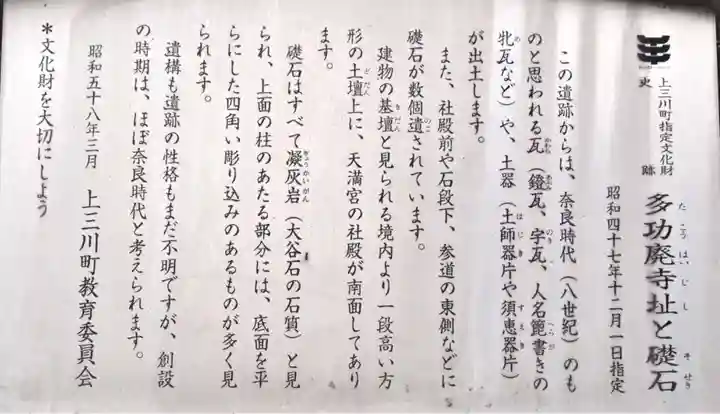 上三川町指定文化財
史跡 多功廃寺址と礎石
昭和四十七年十二月一日指定
この遺跡からは、奈良時代（八世紀）のも
のと思われる瓦（鐙瓦、字瓦、人名箆書きの
牝瓦など）や、土器（土師器片や須恵器片）
が出土します。
また、社殿前や石段下、参道の東側などに
礎石が数個遺されています。
建物の基壇と見られる境内より一段高い方
形の土壇上に、天満宮の社殿が南面してあり
ます。
礎石はすべて凝灰岩（大谷石の石質）と見
られ、上面の柱のあたる部分には、底面を平
らにした四角い彫り込みのあるものが多く見
られます。
遺構も遺跡の性格もまだ不明ですが、創設
の時期は、ほぼ奈良時代と考えられます。
昭和五十八年三月 上三川町教育委員会
＊文化財を大切にしよう